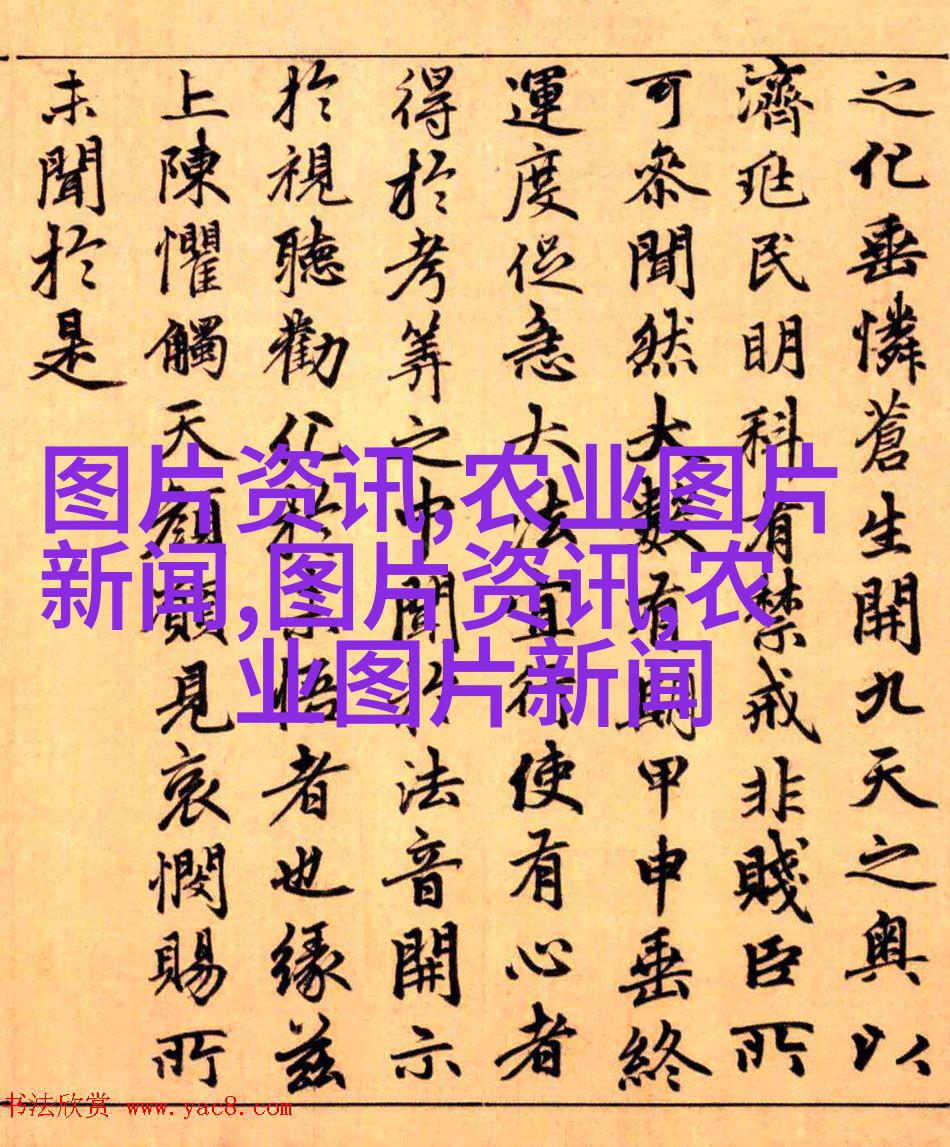 之化垂憐蒼生開九天之奥以
濟兆民明科有禁戒非賤臣所
可叅聞然大數有期甲申垂終
運度促急大法宜行使有心者
得於考筭之中聞於法音開示
於視聽勸化於未悟者也緣兹
上陳懼觸天顔願見哀憫賜所
未聞於是
图片资讯,农业图片
新闻,图片资讯,农
业图片新闻
书法欣赏 www.yac8.com